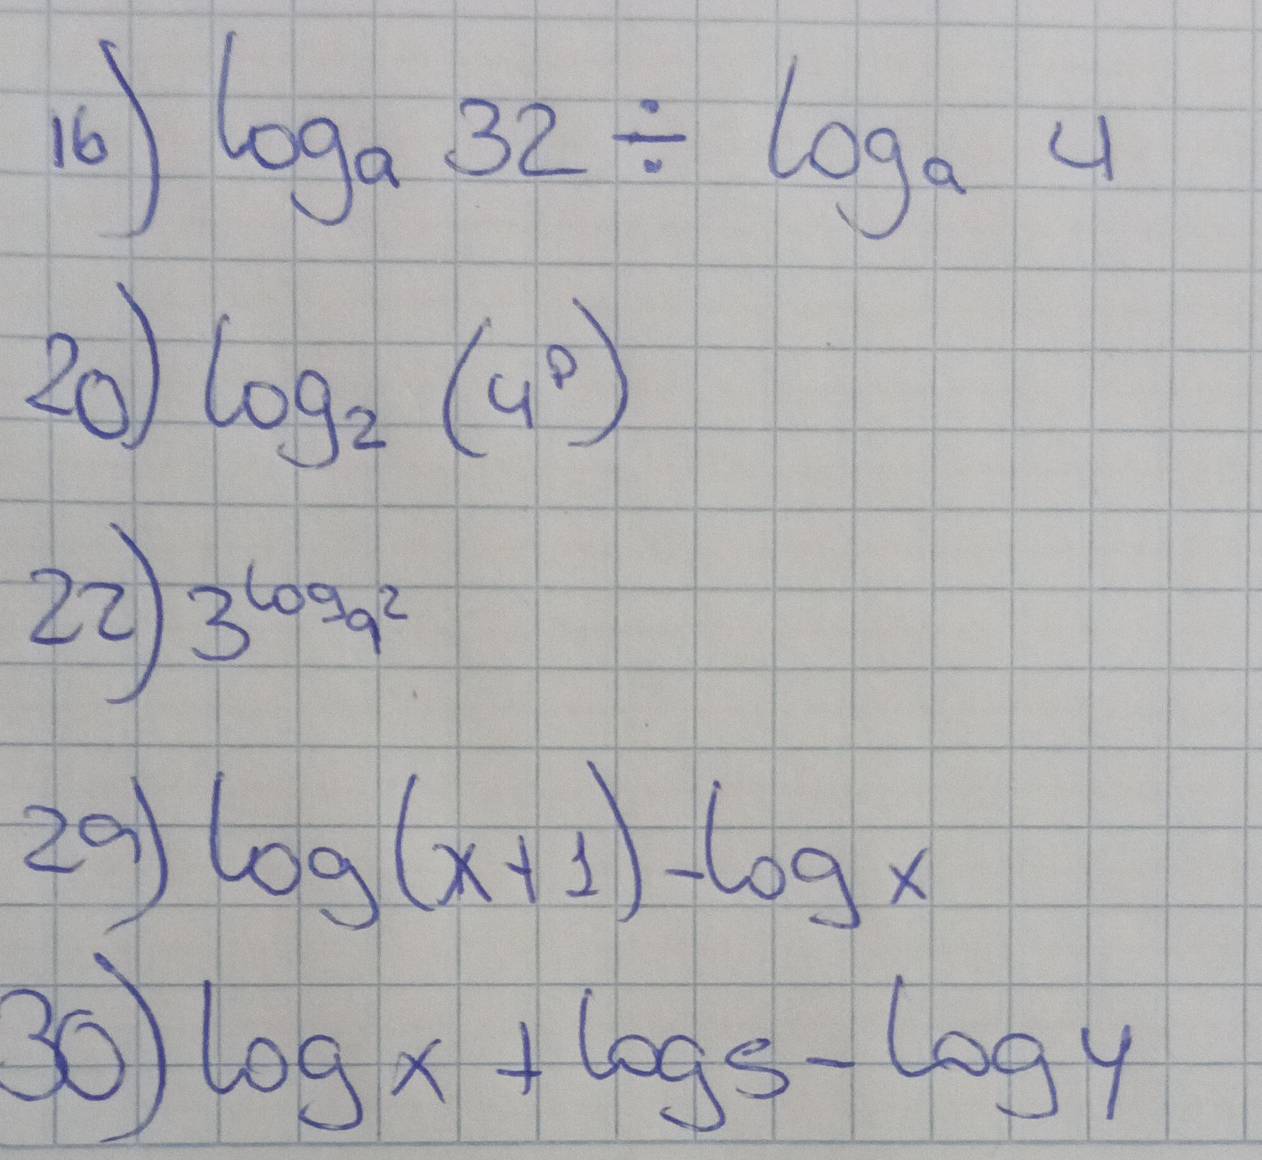 16) logₐ 32 ÷ logₐ 4
20) log₂ (4ᵖ)
22) 3^log₉2
29) log(x+1)-log x
30) log x + log 5 - log y